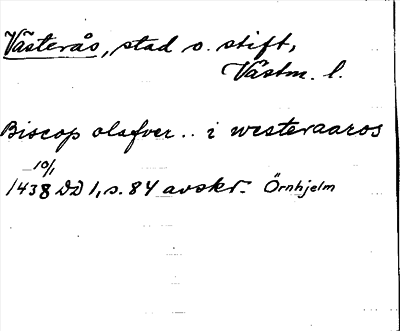 Västerås, stad o. stift,
Västm. l.
Biscop olafver.. i westeraaros
10/1
1438 DD 1, s. 84 avskr. Örnhjelm